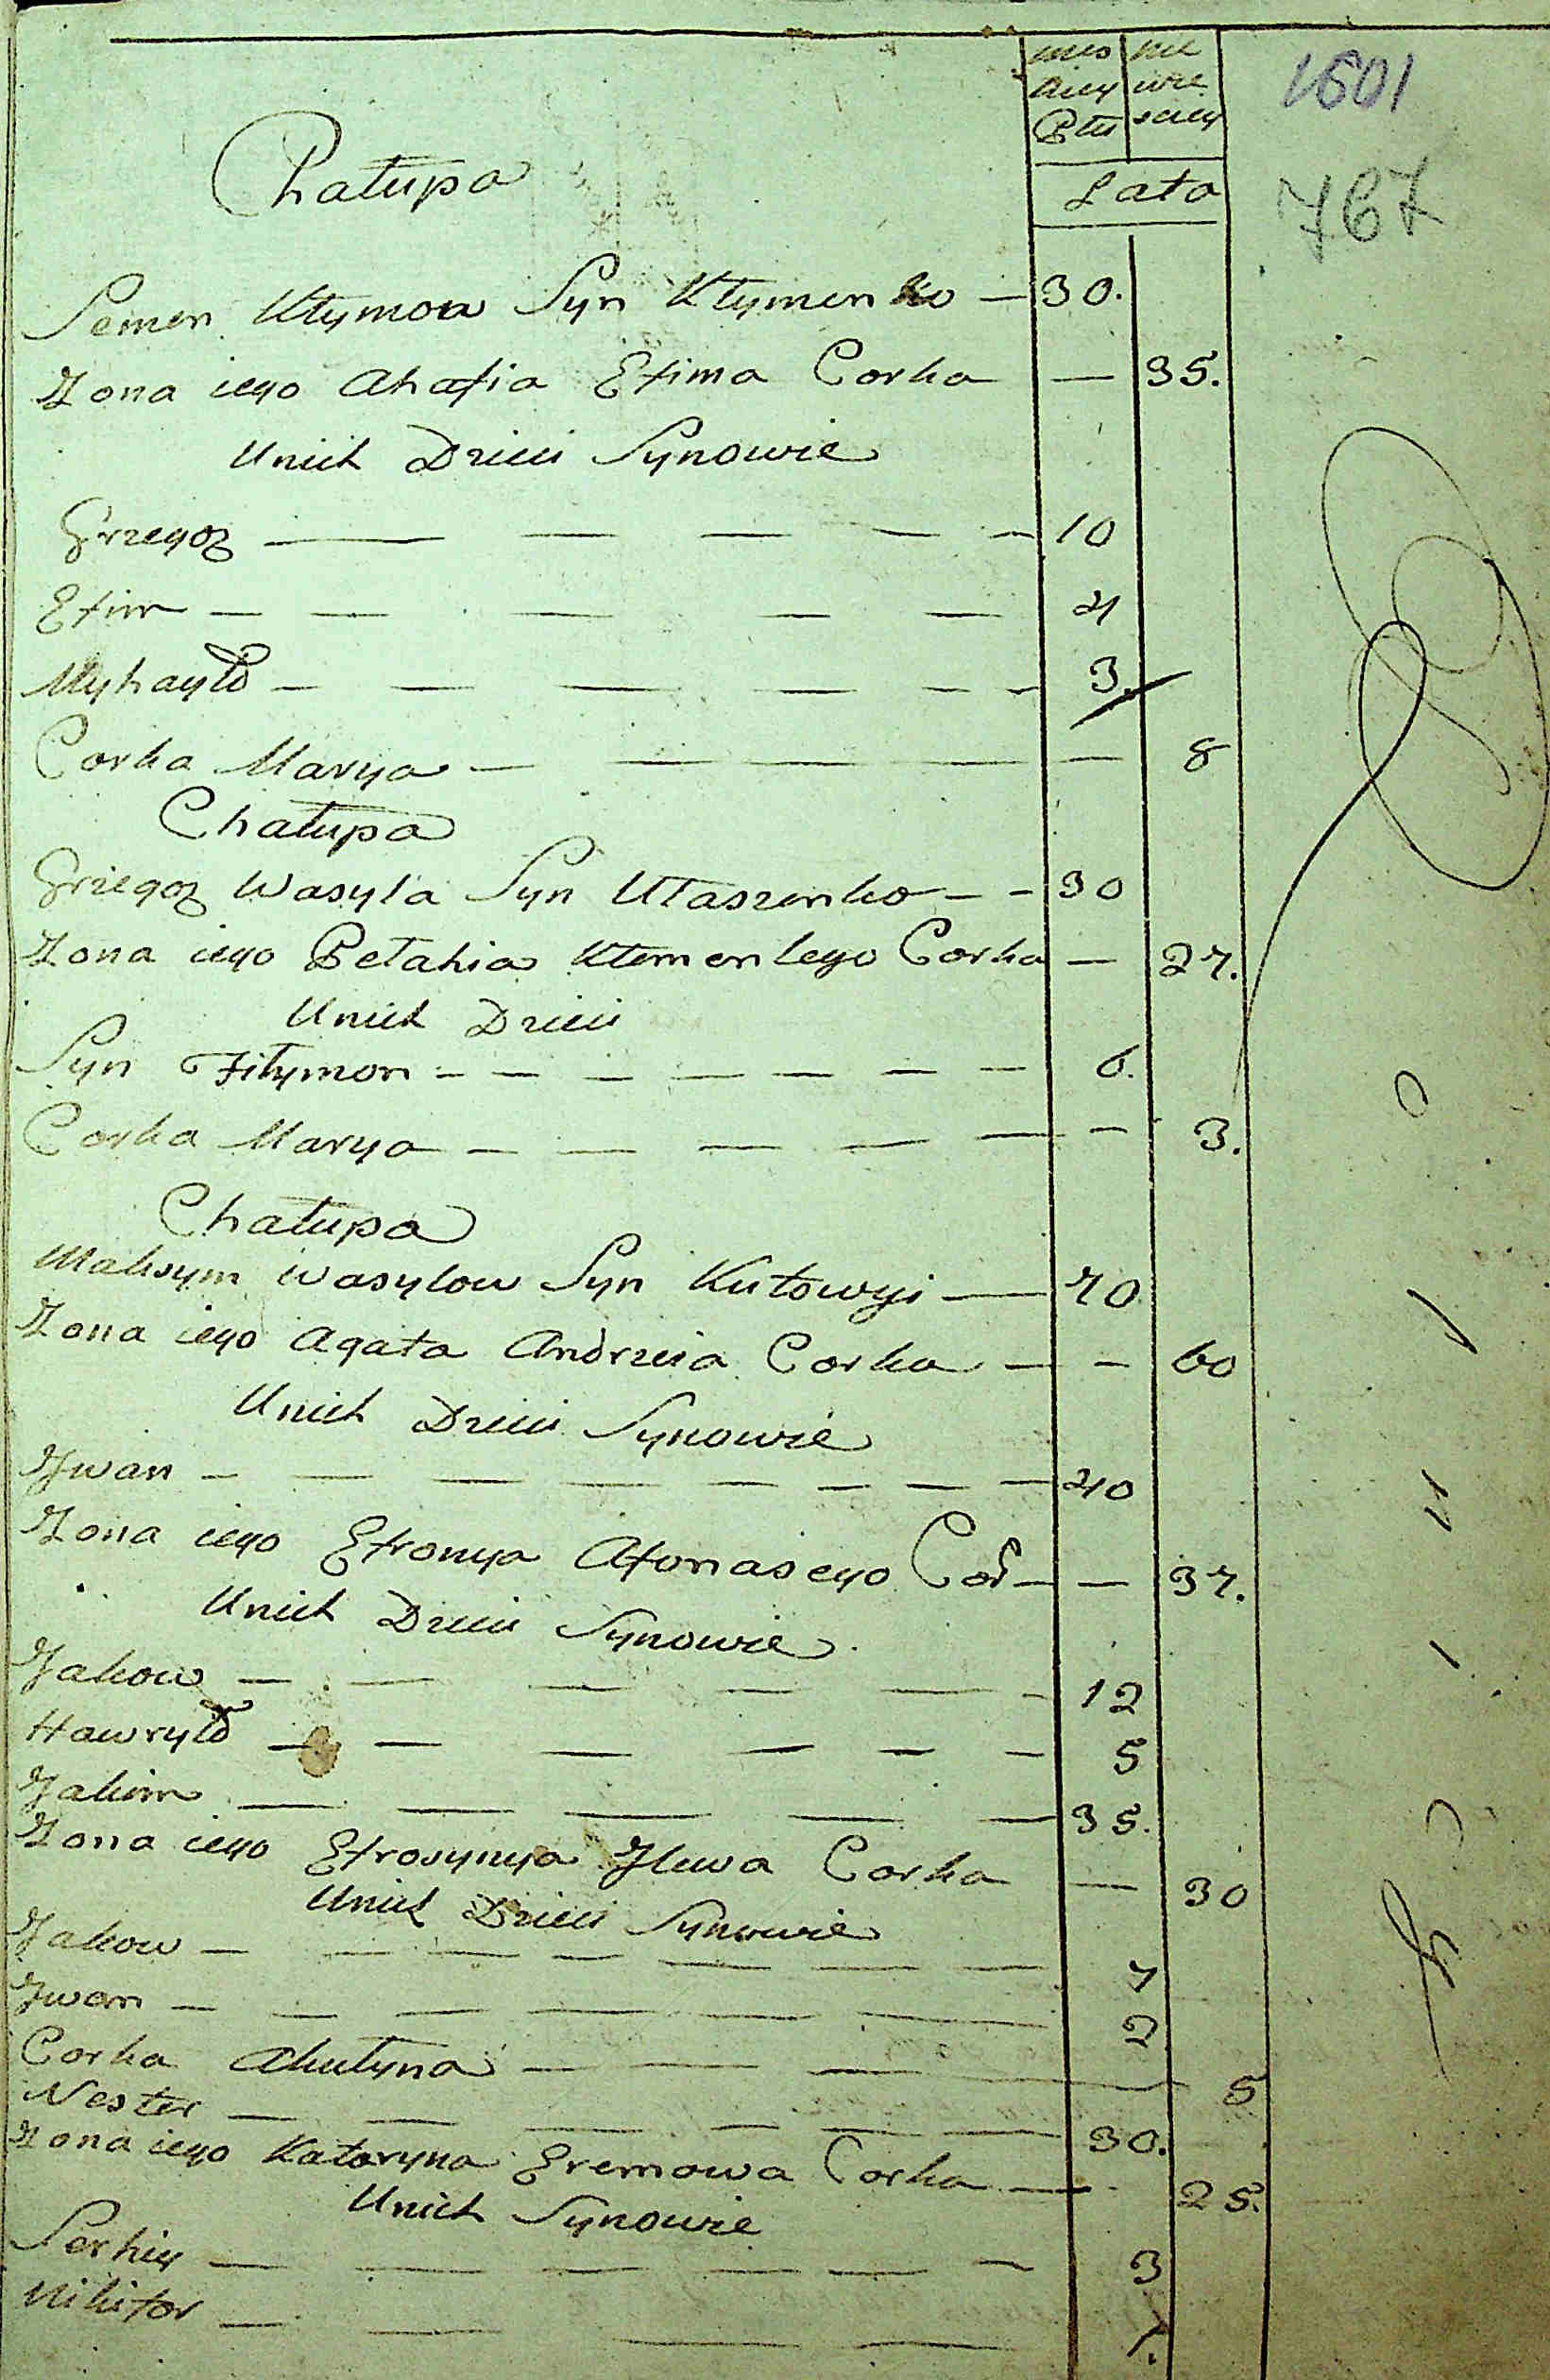 mes nie
kiey wie
Płci sciey
1601
Chałupa
Lata
767
Semen Kłymowa Syn Kłymenko — 30.
Zona iego Ahafia Efima Corka — 35.
Unich Dzieci Synowie
Grzegorz — 10
Efim — 4
Myhayło — 3.
Corka Marya — 8
Chałupa
Grzegorz Wasyla Syn Właszenko — 30
Zona iego Pełahia Klemenlego Corka — 27.
Unich Dzieci
Syn Fiłymon — 6.
Corka Marya — 3.
Chałupa
Maksym Wasylow Syn Kutowyi — 70
Zona iego Agata Andrzeia Corka — 60
Unich Dzieci Synowie
Jwan — 40
Zona iego Efronya Afonasego Cor — 37.
Unich Dzieci Synowie
Jakow — 12
Hawryło — 5
Jakim — 35.
Zona iego Efrosynya Jlewa Corka — 30
Unich Dzieci Synowie
Jakow — 7
Jwan — 2
Corka Akułyna — 5
Nester — 30.
Zona iego Kataryna Eremowa Corka — 25.
Unich Synowie
Serhiy — 3
Nikifor — 1.